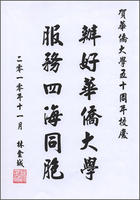 贺華僑大學五十周年校慶
辦好華僑大學
服務四海同胞
二零一零年十一月
林金城